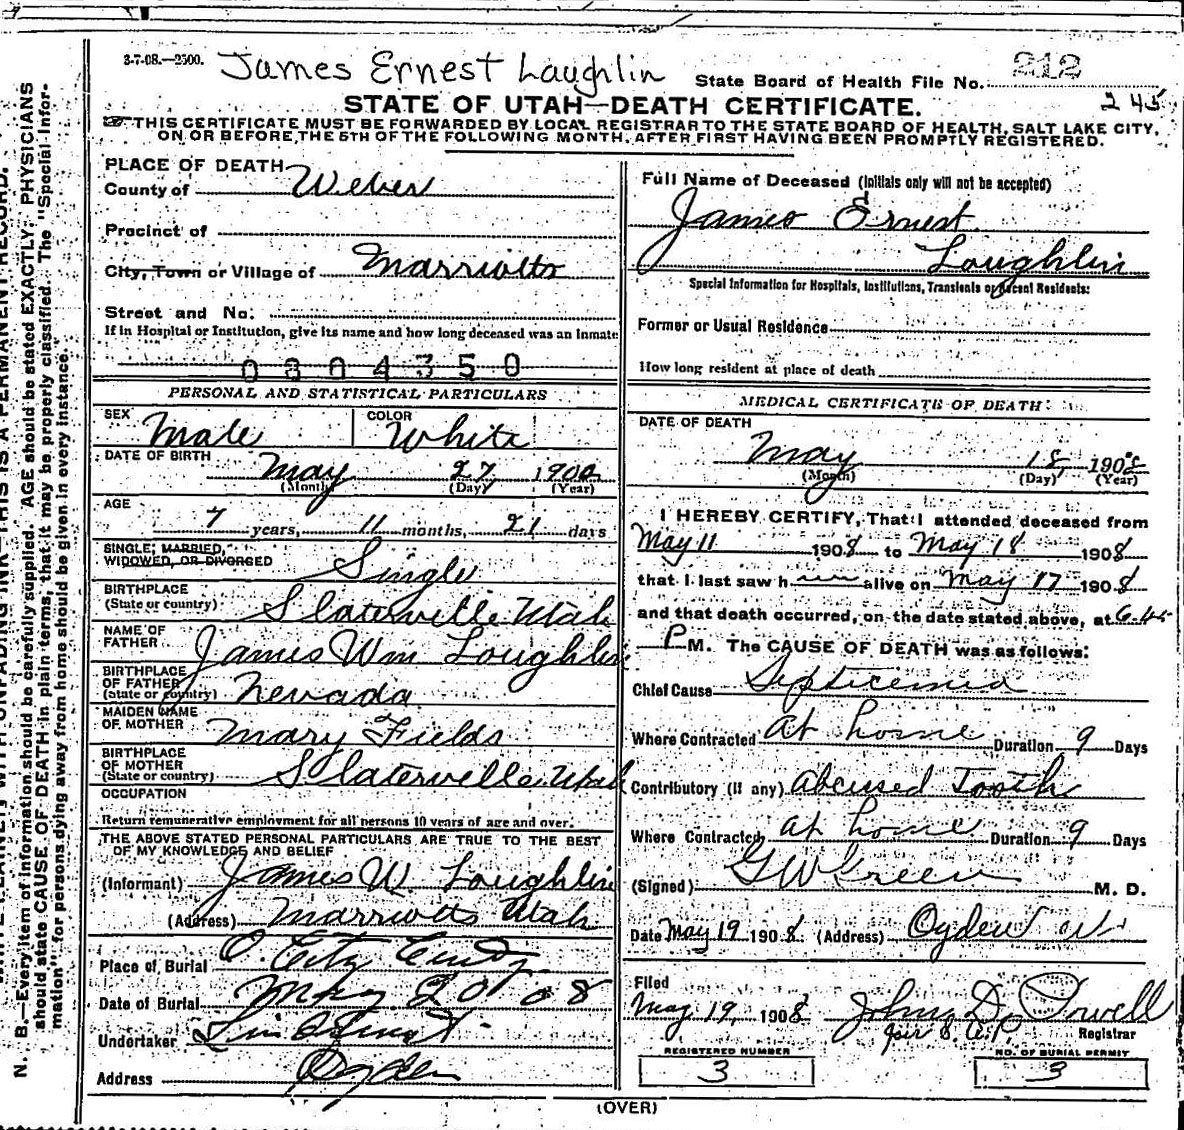 3-7-08.—2500. James Ernest Laughlin State Board of Health File No. 212
245
STATE OF UTAH—DEATH CERTIFICATE.
THIS CERTIFICATE MUST BE FORWARDED BY LOCAL REGISTRAR TO THE STATE BOARD OF HEALTH, SALT LAKE CITY,
ON OR BEFORE THE 5TH OF THE FOLLOWING MONTH, AFTER FIRST HAVING BEEN PROMPTLY REGISTERED.
PLACE OF DEATH
County of Weber
Precinct of
City, Town or Village of Marriotts
Street and No.
If in Hospital or Institution, give its name and how long deceased was an inmate
0304350
PERSONAL AND STATISTICAL PARTICULARS
SEX Male COLOR White
DATE OF BIRTH May 27 1900
(Month) (Day) (Year)
AGE
7 years, 11 months, 21 days
SINGLE, MARRIED,
WIDOWED, OR DIVORCED Single
BIRTHPLACE
(State or country) Slaterville Utah
NAME OF
FATHER James Wm Loughlin
BIRTHPLACE
OF FATHER
(State or country) Nevada
MAIDEN NAME
OF MOTHER Mary Fields
BIRTHPLACE
OF MOTHER
(State or country) Slaterville Utah
OCCUPATION
Return remunerative employment for all persons 10 years of age and over.
THE ABOVE STATED PERSONAL PARTICULARS ARE TRUE TO THE BEST
OF MY KNOWLEDGE AND BELIEF
(Informant) James W. Loughlin
(Address) Marriotts Utah
Place of Burial O. City
Date of Burial May 20 08
Undertaker
Address Ogden
Full Name of Deceased (Initials only will not be accepted)
James Ernest
Loughlin
Special Information for Hospitals, Institutions, Transients or Recent Residents:
Former or Usual Residence
How long resident at place of death
MEDICAL CERTIFICATE OF DEATH
DATE OF DEATH
May 18, 1908
(Month) (Day) (Year)
I HEREBY CERTIFY, That I attended deceased from
May 11 1908 to May 18 1908
that I last saw h alive on May 17 1908
and that death occurred, on the date stated above, at 6-45
P M. The CAUSE OF DEATH was as follows:
Chief Cause Septicemia
Where Contracted At home Duration 9 Days
Contributory (if any) Abcessed Tooth
Where Contracted at home Duration 9 Days
(Signed) G W Green M. D.
Date May 19 1908 (Address) Ogden Ut
Filed
May 19, 1908 John D.
Registrar
REGISTERED NUMBER
3
NO. OF BURIAL PERMIT
3
(OVER)
N. B.—Every item of information should be carefully supplied. AGE should be stated EXACTLY. PHYSICIANS
should state CAUSE OF DEATH in plain terms, that it may be properly classified. The "Special Infor-
mation" for persons dying away from home should be given in every instance.